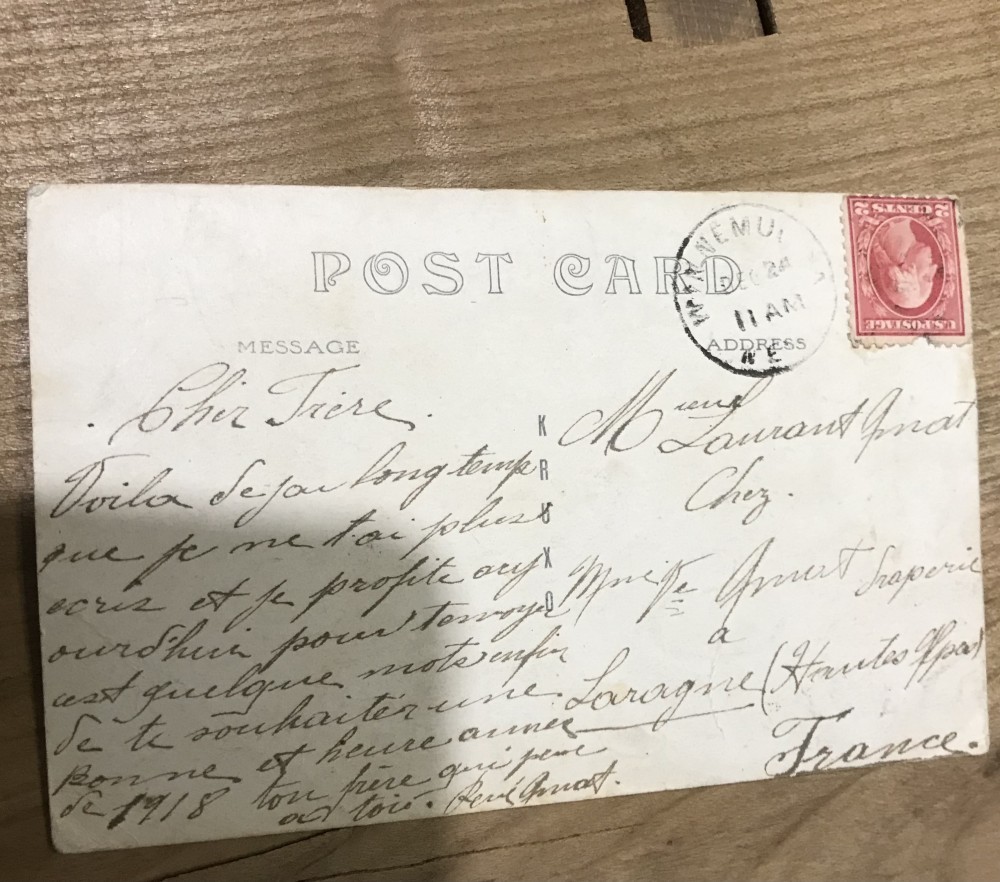 POST CARD
MESSAGE
ADDRESS
DEC 24
11 AM
NE
U.S. POSTAGE
2 CENTS 2
KRUXO
Cher Frère.
Voila deja longtemp
que je ne t'ai plus
ecris et je profite auj
ourd'hui pour t'envoyer
cest quelque mots enfin
de te souhaiter une
bonne et heure annee
de 1918 ton frère qui pense
a toi. René
Laurant
Chez.
Mme Ve draperie
a
Laragne (Hautes Alpes)
France.